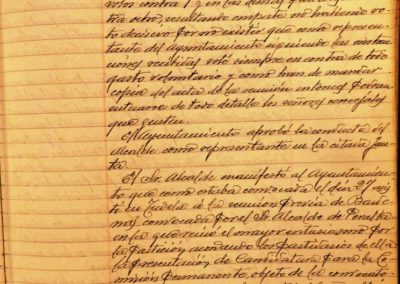 votos contra 1 y en las demás
otra ocho, resultando empate no habiendo vo-
to decisivo por no existir que como represen-
tante del Ayuntamiento siguiendo las instruc-
ciones recibidas votó siempre en contra de todo
gasto voluntario y como han de mandar
copia del acta de la reunión entonces podran
enterarse de todo detalle los señores concejales
que gusten.
El Ayuntamiento aprobó la conducta del
Alcalde como representante en la citada Jun-
ta.
El Sr. Alcalde manifestó al Ayuntamien-
to, que como estaba convocada el dia 27 asis-
tió en Tudela á la reunion previa de
convocada por el Sr. Alcalde de
en la que reinó el mayor entusiasmo por
la partición acordando los partidarios de ella
la presentación de Candidatura para la Co-
misión permanente, objeto de la convocato-